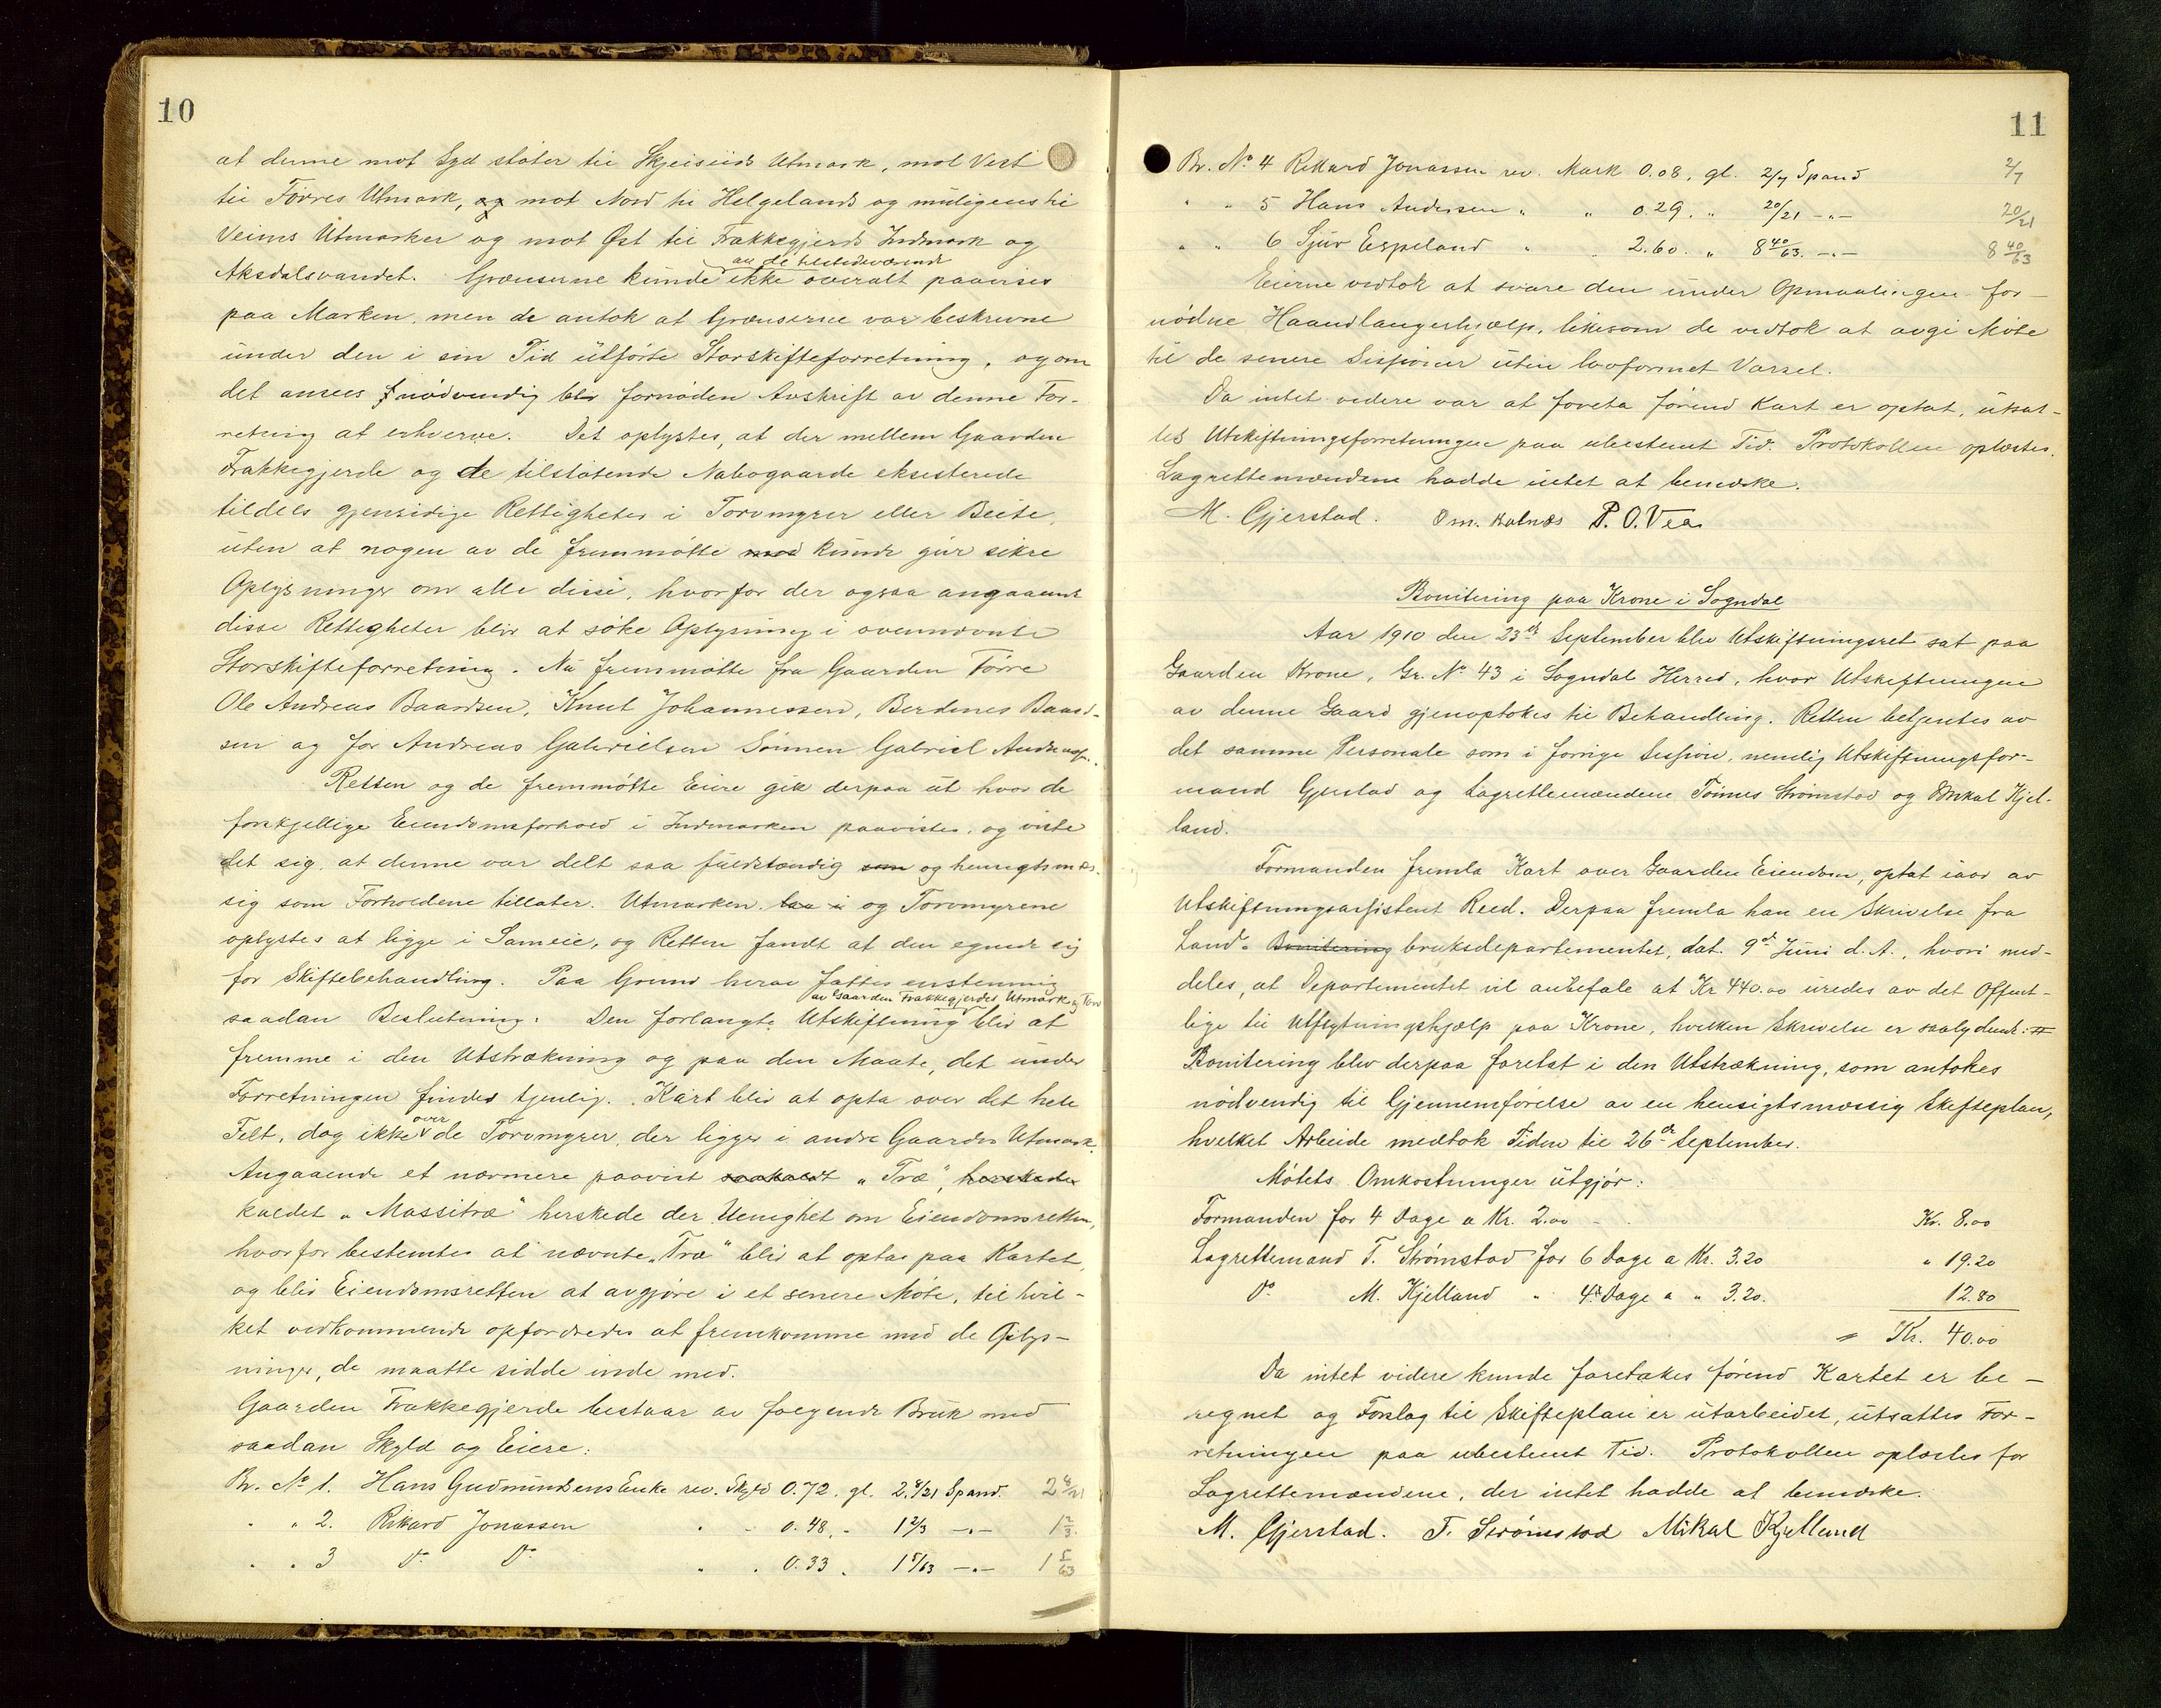 10
at denne mot Syd støter til Skjeiseids Utmark, mot Vest
til Førres Utmark, og mot Nord til Helgelands og muligens til
Veims Utmarker og mot Øst til Frakkegjerds Indmark og
av de tilstedeværende
Aksdalsvandet. Grænserne kunde ikke overalt paavises
paa Marken, men de antok at Grænserne var beskrevne
under den i sin Tid utførte Storskifteforretning, og om
det ansees nødvendig blir fornøden Avskrift av denne For-
retning at erhverve. Det oplystes, at der mellem Gaarden
Frakkegjerde og de tilstøtende Nabogaarde eksisterede
tildels gjensidige Rettigheter i Torvmyrer eller Beite,
uten at nogen av de fremmøtte med kunde gi sikre
Oplysninger om alle disse, hvorfor der ogsaa angaaende
disse Rettigheter blir at søke Oplysning i ovennævnte
Storskifteforretning. Nu fremmøtte fra Gaarden Førre
Ole Andreas Baardsen, Knut Johannessen, Berdines Baard-
sen og for Andreas Gabrielsen Sønnen Gabriel Andreasen.
Retten og de fremmøtte Eiere gik derpaa ut hvor de
forskjellige Eiendomsforhold i Indmarken paavistes, og viste
det sig, at denne var delt saa fuldstændig som og hensigtsmæs-
sig som Forholdene tillater. Utmarken laa i og Torvmyrene
oplystes at ligge i Sameie, og Retten fandt at den egnede sig
for Skiftebehandling. Paa Grund herav fattes enstemmig
av Gaarden Frakkegjerdes Utmark og Torv
saadan Beslutning: Den forlangte Utskiftning blir at
fremme i den Utstrækning og paa den Maate, det under
Forretningen findes tjenlig. Kart blir at opta over det hele
over
Felt, dog ikke de Torvmyrer, der ligger i andre Gaardes Utmark.
Angaaende et nærmere paavist saakaldt "Træ", herskede
kaldet "Massitræ" herskede der Uenighet om Eiendomsretten,
hvorfor bestemtes at nævnte "Træ" blir at optas paa Kartet,
og blir Eiendomsretten at avgjøre i et senere Møte, til hvil-
ket vedkommende opfordredes at fremkomme med de Oplys-
ninger, de maatte sidde inde med.
Gaarden Frakkegjerde bestaar av følgende Bruk med
saadan Skyld og Eiere:
Br. No 1. Hans Gudmundsens Enke rev. Skyld 0.72, gl. 2 8/21 Spand. 2 8/21
" " 2. Rikard Jonassen " " 0.48, " 1 2/3 —"— 1 2/3.
" " 3 Do Do " " 0.33 " 1 5/63 —"— 1 5/63
11
Br. No 4 Rikard Jonassen rev. Mark 0.08, gl. 2/7 Spand 2/7
" " 5 Hans Andersen " " 0.29. " 20/21 —"— 20/21
" " 6 Sjur Espeland " " 2.60. " 8 40/63. —"— 8 40/63
Eierne vedtok at svare den under Opmaalingen for-
nødne Haandlangerhjælp, likesom de vedtok at avgi Møte
til de senere Sessioner uten lovformet Varsel.
Da intet videre var at foreta førend Kart er optat, utsat-
tes Utskiftningsforretningen paa ubestemt Tid. Protokollen oplæstes.
Lagrettemændene hadde intet at bemærke.
M. Gjerstad. P. O. Vea.
Bonitering paa Krone i Sogndal
Aar 1910 den 23de September blev Utskiftningsret sat paa
Gaarden Krone, Gr. No 43 i Sogndal Herred, hvor Utskiftningen
av denne Gaard gjenoptokes til Behandling. Retten betjentes av
det samme Personale som i forrige Session, nemlig Utskiftningsfor-
mand Gjerstad og Lagrettemændene Tønnes Strømstad og Mikal Kjel-
land.
Formanden fremla Kart over Gaarden Eiendom, optat iaar av
Utskiftningsassistent Reed. Derpaa fremla han en Skrivelse fra
Land- Bonitering bruksdepartementet, dat. 9de Juni d. A., hvori med-
deles, at Departementet vil anbefale at Kr 440.00 uredes av det Offent-
lige til Utflytningshjælp paa Krone, hvilken Skrivelse er saalydende: #
Bonitering blev derpaa foretat i den Utstrækning, som antokes
nødvendig til Gjennemførelse av en hensigtsmæssig Skifteplan,
hvilket Arbeide medtok Tiden til 26de September.
Møtets Omkostninger utgjør:
Formanden for 4 Dage a Kr. 2.00 - Kr. 8.00
Lagrettemand T. Strømstad for 6 Dage a Kr. 3.20 " 19.20
Do M. Kjelland " 4 Dage a " 3.20. 12.80
= Kr. 40.00
Da intet videre kunde foretakes førend Kartet er be-
regnet og Forslag til Skifteplan er utarbeidet, utsattes For-
retningen paa ubestemt Tid. Protokollen oplæstes for
Lagrettemændene, der intet hadde at bemærke.
M. Gjerstad. T. Strømstad Mikal Kjelland